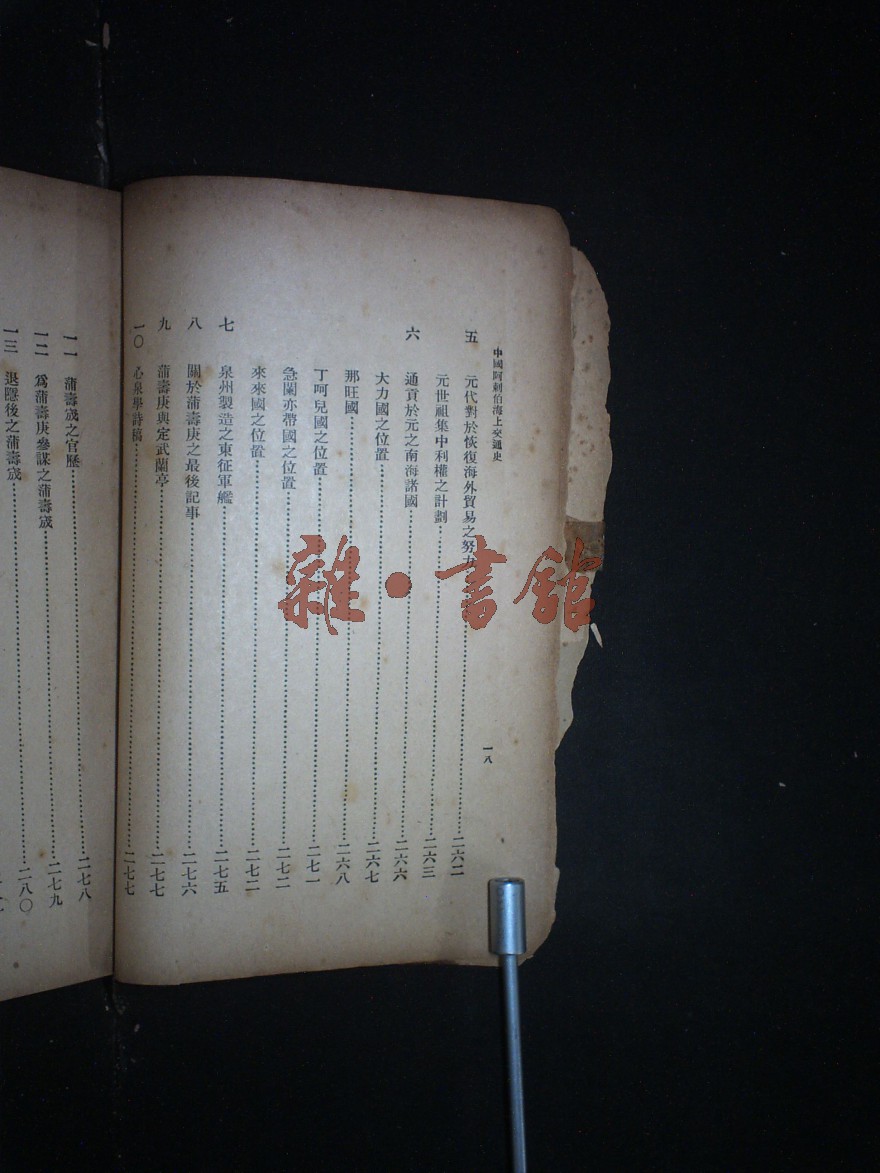 中國阿剌伯海上交通史
一八
五 元代對於恢復海外貿易之努力 二六二
元世祖集中利權之計劃 二六三
六 通貢於元之南海諸國 二六六
大力國之位置 二六七
那旺國 二六八
丁呵兒國之位置 二七一
急闌亦帶國之位置 二七二
來來國之位置 二七二
七 泉州製造之東征軍艦 二七五
八 關於蒲壽庚之最後記事 二七六
九 蒲壽庚與定武蘭亭 二七七
一〇 心泉學詩稿 二七七
一一 蒲壽宬之官歷 二七八
一二 爲蒲壽庚參謀之蒲壽宬 二七九
一三 退隱後之蒲壽宬 二八〇
雜·書館